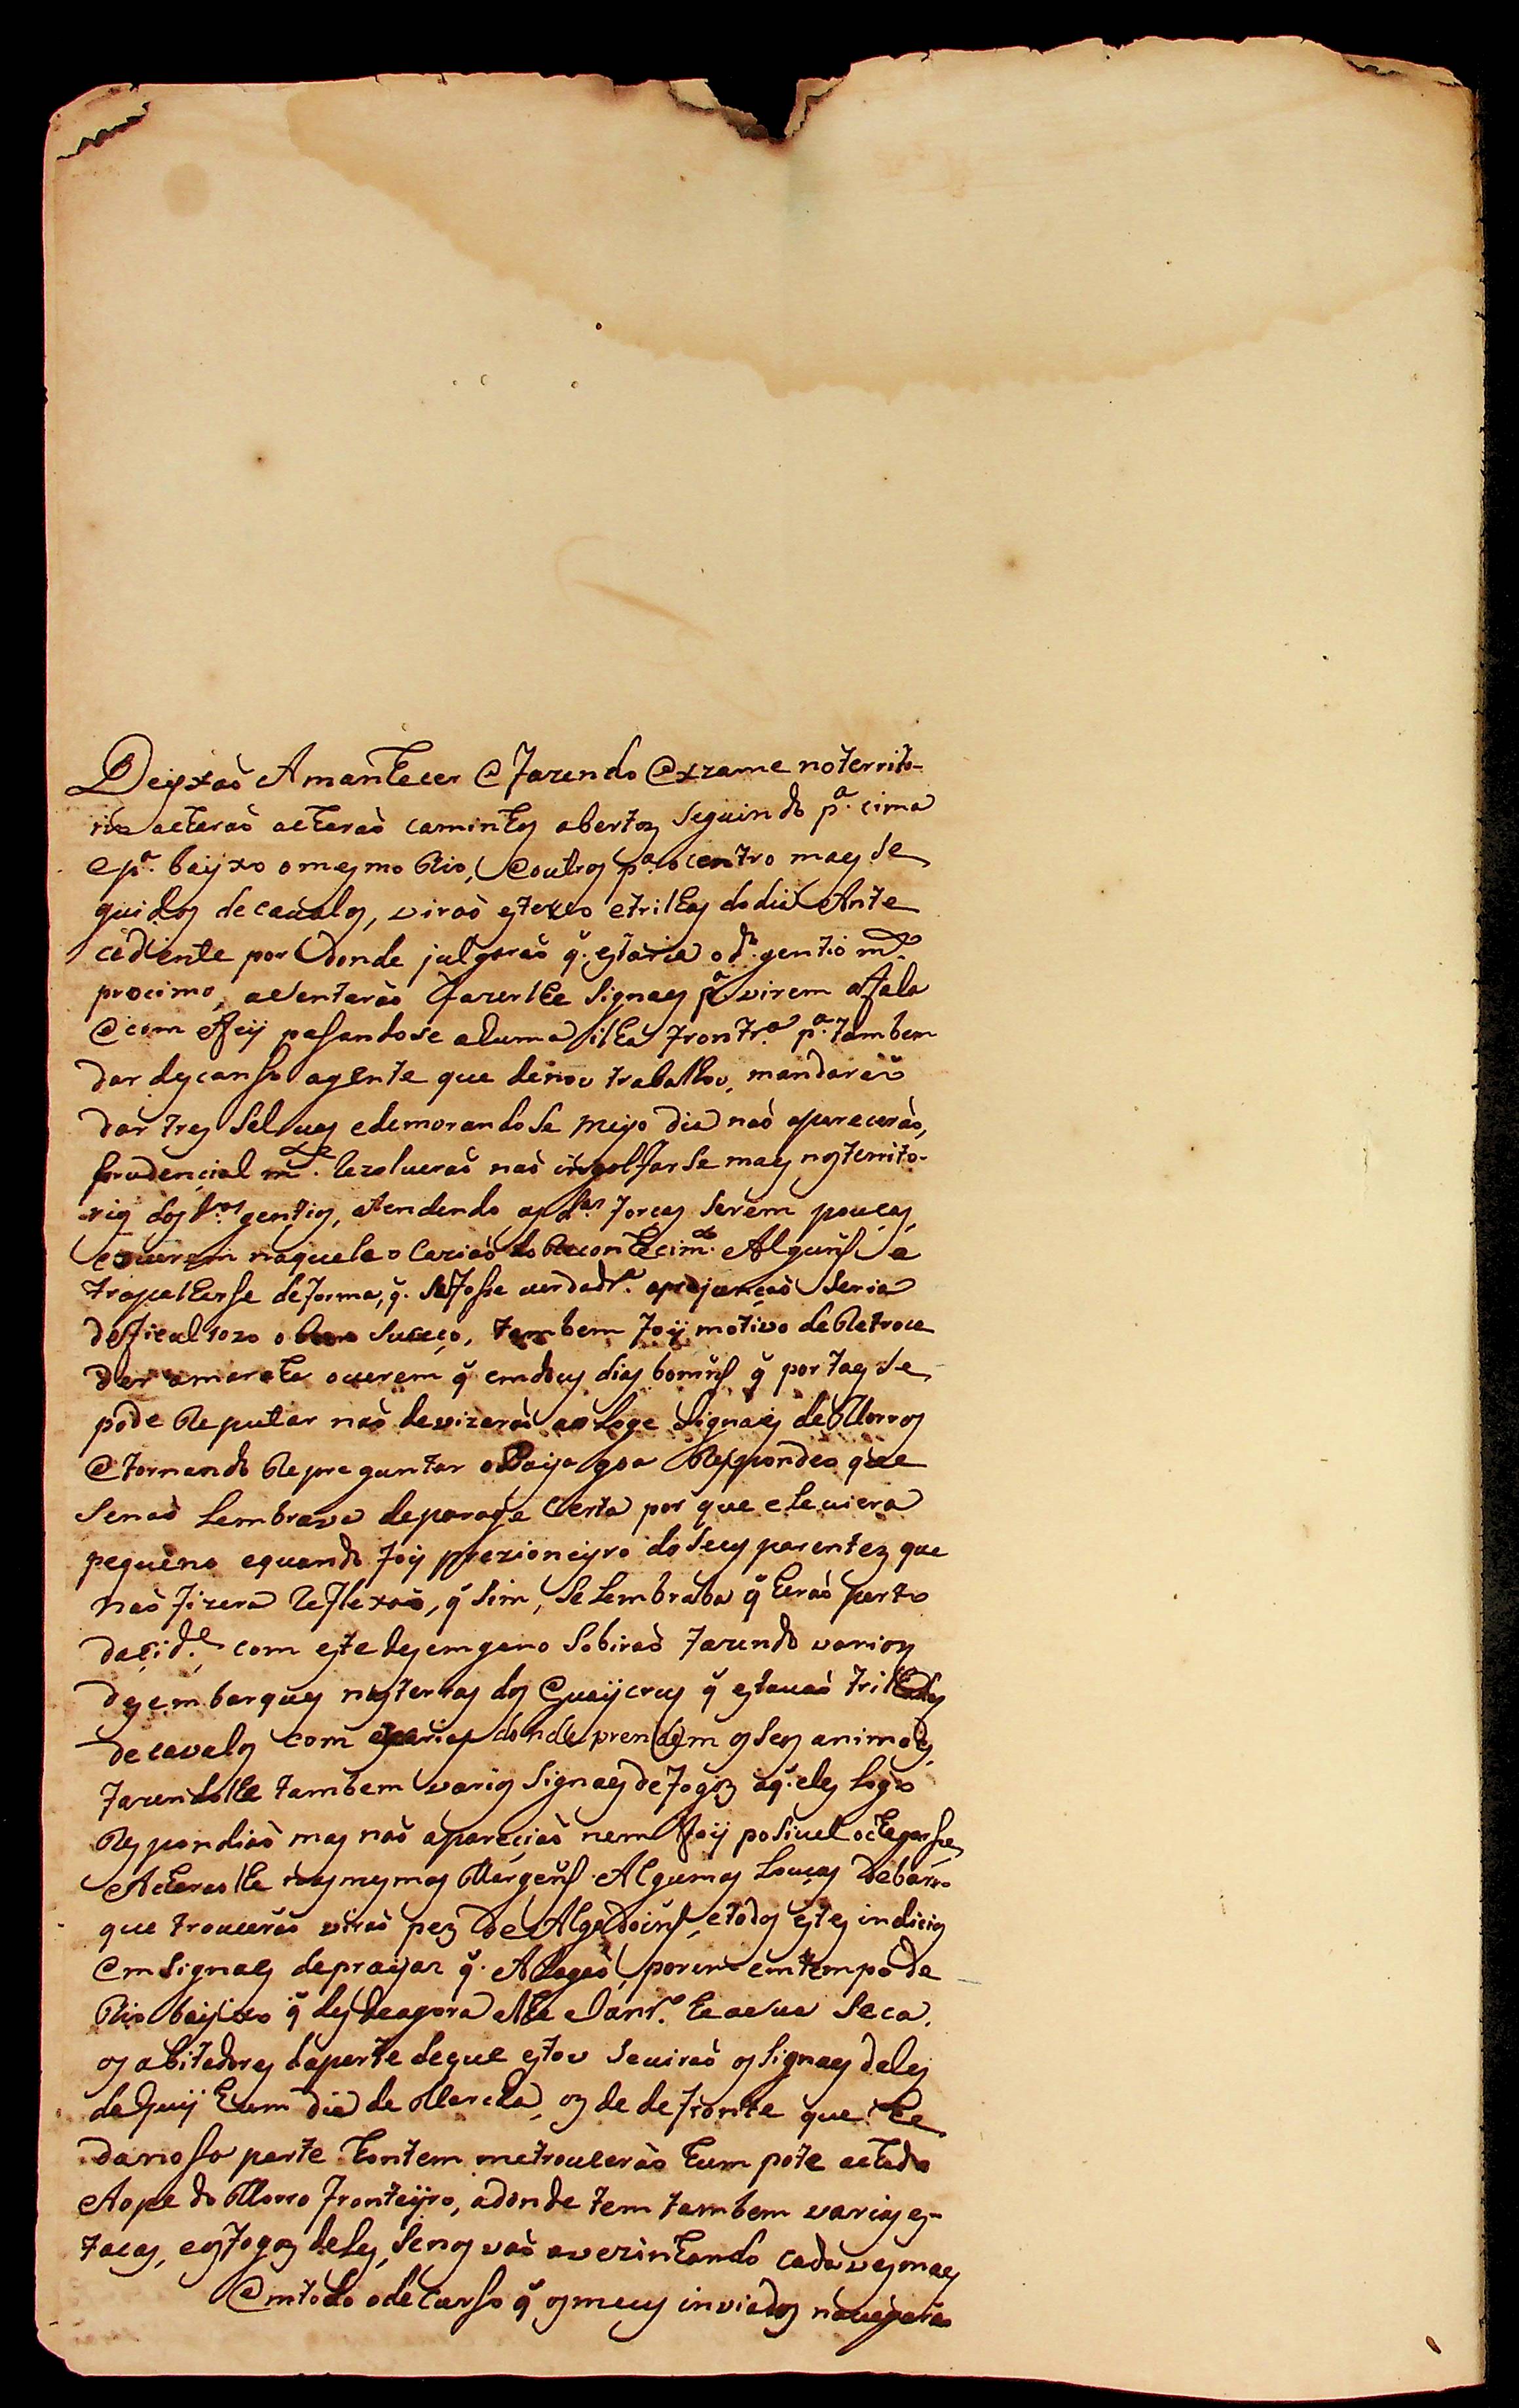 Deyxaõ Amanhecer e fazendo exzame no territo-
rio acharaõ acharaõ caminhos abertos seguindo p.ª cima
e p.ª bayxo o mesmo Rio, e outros p.ª o centro mas se
guidos de cavalos, viraõ esterco e trilhas do dia Ante
cediente por donde julgaraõ q̃. estaria o d.º gentio m.to
procimo, asentaraõ fazerlhe signaes p.ª virem a fala
e com efeij pasandose a huma ilha fronfr.ª p.ª tambem
dar descanso a gente que de nou trabalhou, mandaraõ
dar tres selvas e demorandose meyo dia naõ apareceraõ,
prudencial m.te Rezolueraõ naõ ingolfarse mas nos territo-
rios dos d.os gentios, atendendo as d.as forças serem poucas,
e querem naquele o caziaõ do Recontecim.to Alguns a
tropelharse de forma, q̃. se fose verdadr.ª a pejanças seria
deficultozo o bom suceço, tambem foy motivo de Retroce
der a marcha o verem q̃ em dous dias bonus q̃ por taes se
pode Reputar naõ devizaraõ ao loge signaes de Morros
e tornando Repreguntar o Payagoa Respondeo que
se naõ lembrava de parage certa por que ele viera
pequeno e quando foy prezioneyro do seus parentes que
naõ fizera Reflexaõ, q̃ sim, se lembraba q̃ heraõ perto
da çid.e com este desemgano sobiraõ fazendo varios
desembarques nas terras dos Guaycrus q̃ estavaõ trilhadas
de cavalos com estacias donde prendem os seos animaes,
fazendolhe tambem varios signaes de fogos a q̃. eles logo
Respondiaõ mas naõ apareçiaõ nem foy posivel o chegarse,
Acharaolhe nas mesmas Margens Algumas Louças de barro
que trouceraõ viraõ pes de Algodoins, e todos estes indicios
em signaes de prayas q̃. Alagaõ, porem em tempo de
Rio bayxo q̃ des de agora athe Janr.º he a sua seca.
os abitadores da parte de que estou se viraõ os signaes deles
daquy hum dia de Marcha, os de defronte que he
da nosa parte hontem me trouceraõ hum pote achado
Ao pe do Morro fronteyro, adonde tem tambem varias es-
tacas, e os fogos deles, se nos vaõ avezinhando cada ves mas
Em todo o decurso q̃ os meus inviados navegaraõ